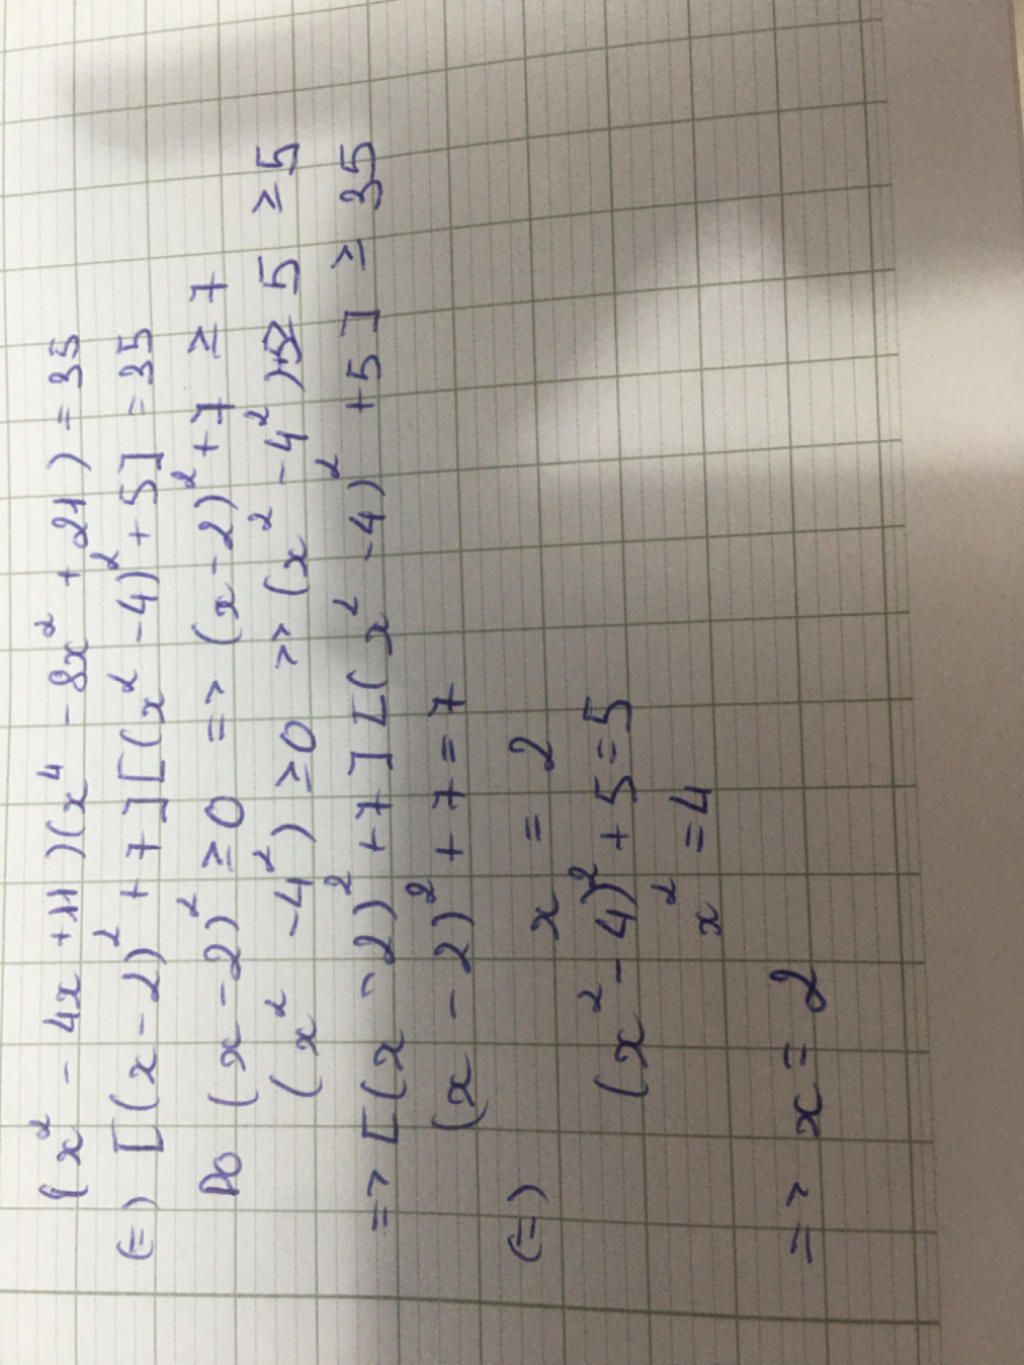 (x² - 4x + 11)(x⁴ - 8x² + 21) = 35
(=) [(x - 2)² + 7][(x² - 4)² + 5] = 35
Do (x - 2)² ≥ 0 => (x - 2)² + 7 ≥ 7
(x² - 4²) ≥ 0 => (x² - 4²) 5 ≥ 5
=> [(x - 2)² + 7][(x² - 4)² + 5] ≥ 35
(x - 2)² + 7 = 7
(=) x = 2
(x² - 4)² + 5 = 5
x² = 4
=> x = 2